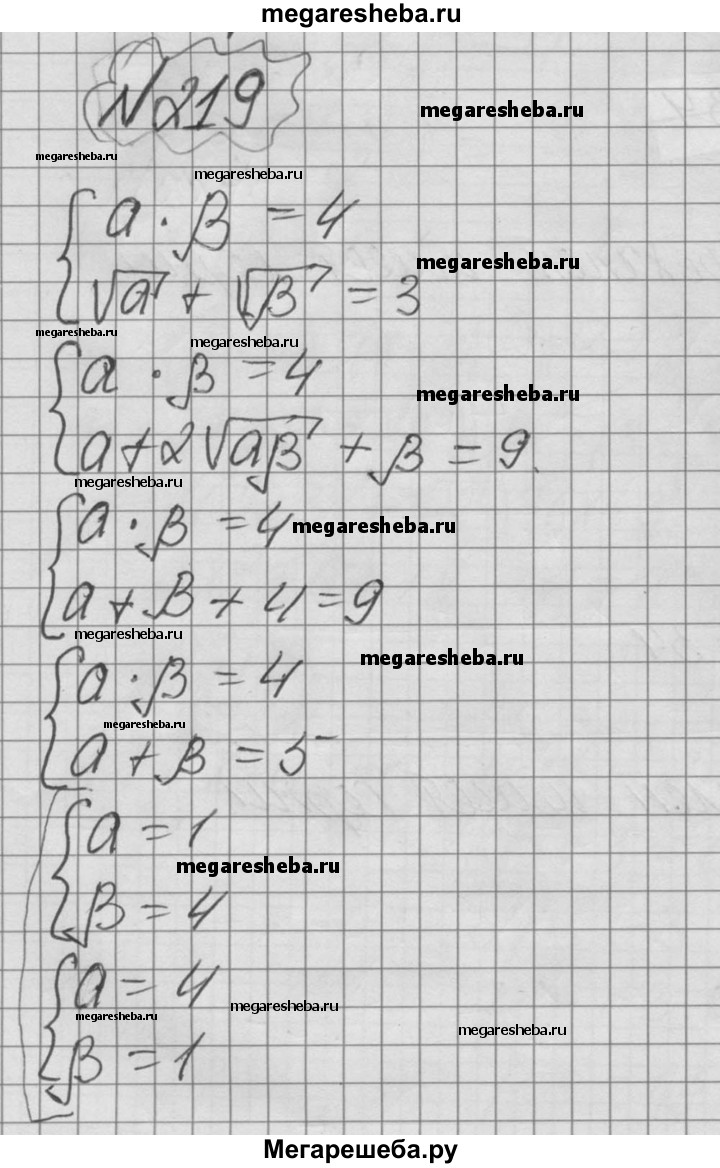 megaresheba.ru
№219
megaresheba.ru
megaresheba.ru
megaresheba.ru
a · β = 4
megaresheba.ru
√a + √β = 3
megaresheba.ru
megaresheba.ru
a · β = 4
megaresheba.ru
a + 2√aβ + β = 9
megaresheba.ru
a · β = 4
megaresheba.ru
a + β + 4 = 9
megaresheba.ru
megaresheba.ru
a · β = 4
megaresheba.ru
a + β = 5
a = 1
megaresheba.ru
β = 4
a = 4
megaresheba.ru
megaresheba.ru
megaresheba.ru
β = 1
Мегарешеба.ру